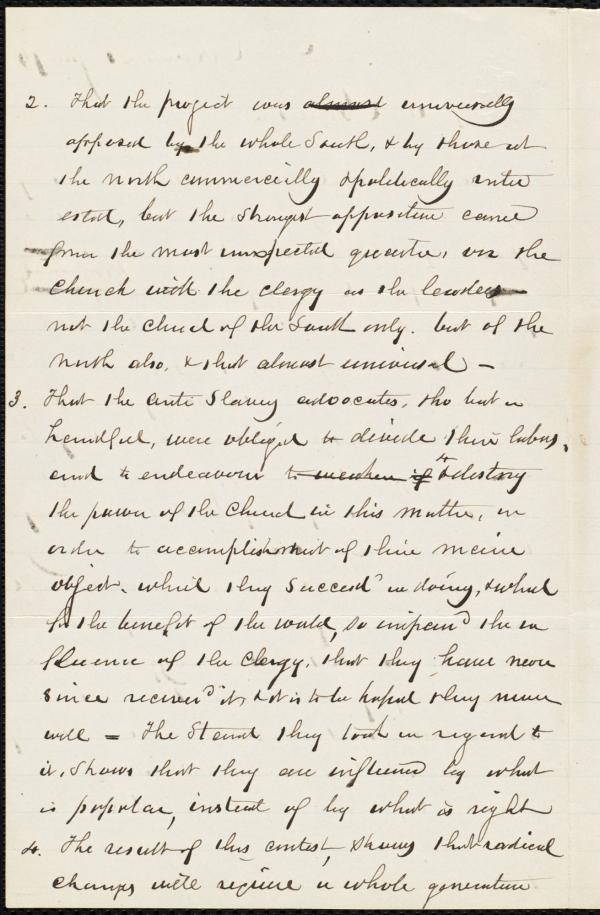 2. That the project was almost universally
opposed by the whole South, & by those at
the north commercially & politically inter
ested, but the strongest opposition came
from the most unexpected quarter, viz the
Church with the clergy as the leaders
not the church of the South only. but of the
North also, & that almost universal –
3. That the anti Slavery advocates, tho but a
handful, were obliged to divide their labors,
and to endeavour to weaken if to destroy
the power of the Church in this matter, in
order to accomplishment of their main
object. which they succeed'd in doing, & which
for the benefit of the world, so impair'd the in
fluence of the clergy, that they have never
since recover'd it, & it is to be hoped they never
will – The Stand they took in regard to
it, shows that they are influenced by what
is popular, instead of by what is right
4. The result of this contest, shows that radical
changes will require a whole generation